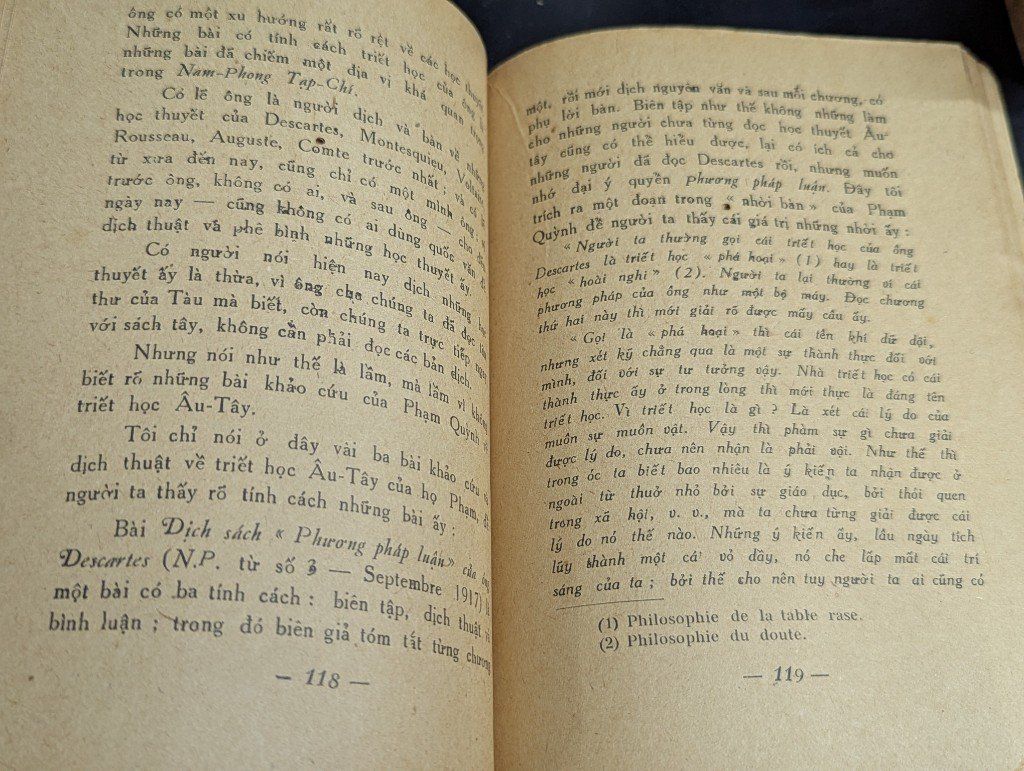 ông có một xu hướng rất rõ rệt về các học thuyết
Những bài có tính cách triết học của ông
những bài đã chiếm một địa vị khá quan
trong Nam-Phong Tạp-Chí.
Có lẽ ông là người dịch và bàn về những
học thuyết của Descartes, Montesquieu,
Rousseau, Auguste, Comte trước nhất; và có lẽ
từ xưa đến nay, cũng chỉ có một mình ông;
trước ông, không có ai, và sau ông — cho đến
ngày nay — cũng không có ai dùng quốc văn để
dịch thuật và phê bình những học thuyết ấy.
Có người nói hiện nay dịch những
thuyết ấy là thừa, vì ông cha chúng ta đã đọc
thư của Tàu mà biết, còn chúng ta trực tiếp ngay
với sách tây, không cần phải đọc các bản dịch.
Nhưng nói như thế là lầm, mà lầm vì không
biết rõ những bài khảo cứu của Phạm Quỳnh về
triết học Âu-Tây.
Tôi chỉ nói ở dây vài ba bài khảo cứu và
dịch thuật về triết học Âu-Tây của họ Phạm, để
người ta thấy rõ tính cách những bài ấy:
Bài Dịch sách « Phương pháp luận » của ông
Descartes (N.P. từ số 3 — Septembre 1917) là
một bài có ba tính cách: biên tập, dịch thuật và
bình luận; trong đó biên giả tóm tắt từng chương
— 118 —
một, rồi mới dịch nguyên văn và sau mỗi chương, có
phụ lời bàn. Biên tập như thế không những làm
cho những người chưa từng đọc học thuyết Âu-
tây cũng có thể hiểu được, lại có ích cả cho
những người đã đọc Descartes rồi, nhưng muốn
nhớ đại ý quyển Phương pháp luận. Đây tôi
trích ra một đoạn trong « nhời bàn » của Phạm
Quỳnh để người ta thấy cái giá trị những nhời ấy:
« Người ta thường gọi cái triết học của ông
Descartes là triết học « phá hoại » (1) hay là triết
học « hoài nghi » (2). Người ta lại thường ví cái
phương pháp của ông như một bộ máy. Đọc chương
thứ hai này thì mới giải rõ được mấy câu ấy.
« Gọi là « phá hoại » thì cái tên khí dữ dội,
nhưng xét kỹ chẳng qua là một sự thành thực đối với
mình, đối với sự tư tưởng vậy. Nhà triết học có cái
thành thực ấy ở trong lòng thì mới thực là đáng tên
triết học. Vì triết học là gì? Là xét cái lý do của
muôn sự muôn vật. Vậy thì phàm sự gì chưa giải
được lý do, chưa nên nhận là phải vội. Như thế thì
trong óc ta biết bao nhiêu là ý kiến ta nhận được ở
ngoài từ thuở nhỏ bởi sự giáo dục, bởi thói quen
trong xã hội, v. v., mà ta chưa từng giải được cái
lý do nó thế nào. Những ý kiến ấy, lâu ngày tích
lũy thành một cái vỏ dầy, nó che lấp mất cái trí
sáng của ta; bởi thế cho nên tuy người ta ai cũng có
(1) Philosophie de la table rase.
(2) Philosophie du doute.
— 119 —